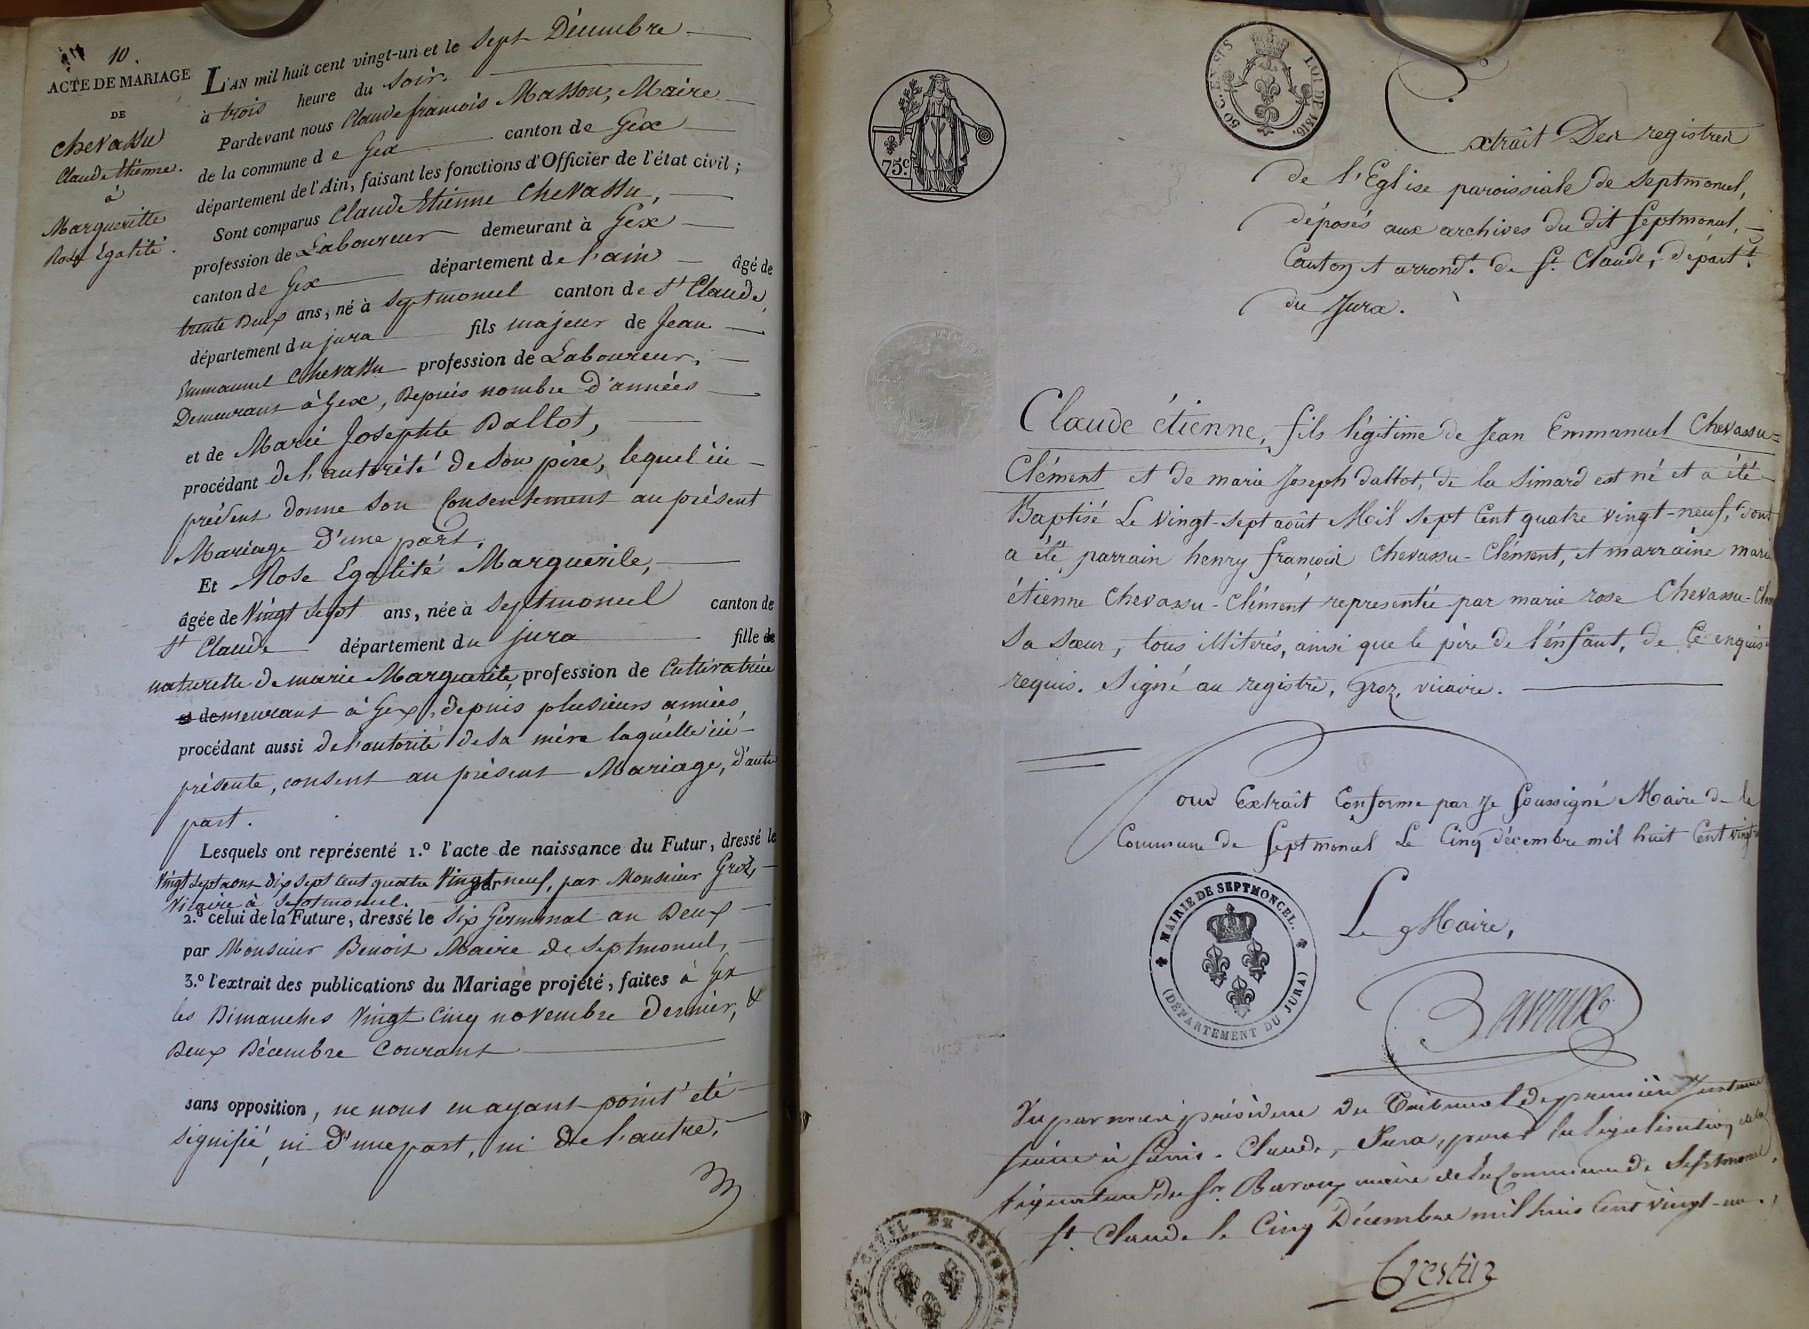 10.
ACTE DE MARIAGE
DE
Chevassu
Claude Etienne.
à
Margueritte
Rose Égalité.
L'AN mil huit cent vingt-un et le Sept Décembre
à trois heure du Soir.
Pardevant nous Claude françois Masson, Maire
de la commune d e Gex canton de Gex
département de l'Ain, faisant les fonctions d'Officier de l'état civil ;
Sont comparus Claude Etienne Chevassu,
profession de Laboureur demeurant à Gex
canton de Gex département de l'ain âgé de
trente Deux ans, né à Septmoncel canton de St Claude
département du jura fils majeur de Jean
Emmanuel Chevassu profession de Laboureur,
Demeurant à Gex, Depuis nombre d'années
et de Marie Josephte Dallot,
procédant de l'autorité de Son père, lequel ici
présent donne Son Consentement au présent
Mariage d'une part.
Et Rose Egalité Marguerite,
âgée de Vingt Sept ans, née à Septmoncel canton de
St Claude département du jura fille de
naturelle de marie Marguerite, profession de Cultivatrice
et demeurant à Gex, depuis plusieurs années,
procédant aussi de l'autorité de Sa mère laquelle ici
présente, consent au présent Mariage, d'autre
part.
Lesquels ont représenté 1.º l'acte de naissance du Futur, dressé le
Vingt Sept aout dix Sept Cent quatre Vingt neuf, par Monsieur Groz,
par
Vicaire à Septmoncel.
2.º celui de la Future, dressé le Six Germinal an Deux
par Monsieur Benoit Maire de Septmoncel,
3.º l'extrait des publications du Mariage projeté, faites à Gex
les Dimanches Vingt Cinq novembre Dernier, &
Deux Décembre Courant
sans opposition, ne nous en ayant point été
signifié, ni d'une part, ni de l'autre.
75c.
50 C. EN SUS LOI DE 1816.
Extrait Des registres
de l'Eglise paroissiale de Septmoncel,
déposés aux archives du dit Septmoncel,
Canton et arrondt. de St. Claude, départt.
du Jura.
Claude étienne, fils légitime de Jean Emmanuel Chevassu=
Clément et de marie Joseph dallot, de la Simard est né et a été
Baptisé Le vingt-sept août Mil Sept Cent quatre vingt-neuf, dont
a été parrain henry françois Chevassu-Clément, et marraine marie
étienne Chevassu-Clément representée par marie rose Chevassu-Clém
Sa Sœur, tous illitérés, ainsi que le père de l'enfant, de Ce enquis
requis. Signé au registre, Groz, vicaire.
Pour Extrait Conforme par Je Soussigné Maire de la
Commune de Septmoncel Le Cinq décembre mil huit Cent vingt
MAIRIE DE SEPTMONCEL.
(DÉPARTEMENT DU JURA)
Le Maire,
Baroux
Vu par nous président du Tribunal de première Instance
séant à Saint-Claude, Jura, pour la légalisation de la
signature du Sr. Baroux maire de la Commune de Septmoncel,
St. Claude le Cinq Décembre mil huit Cent vingt-un.
Crestin